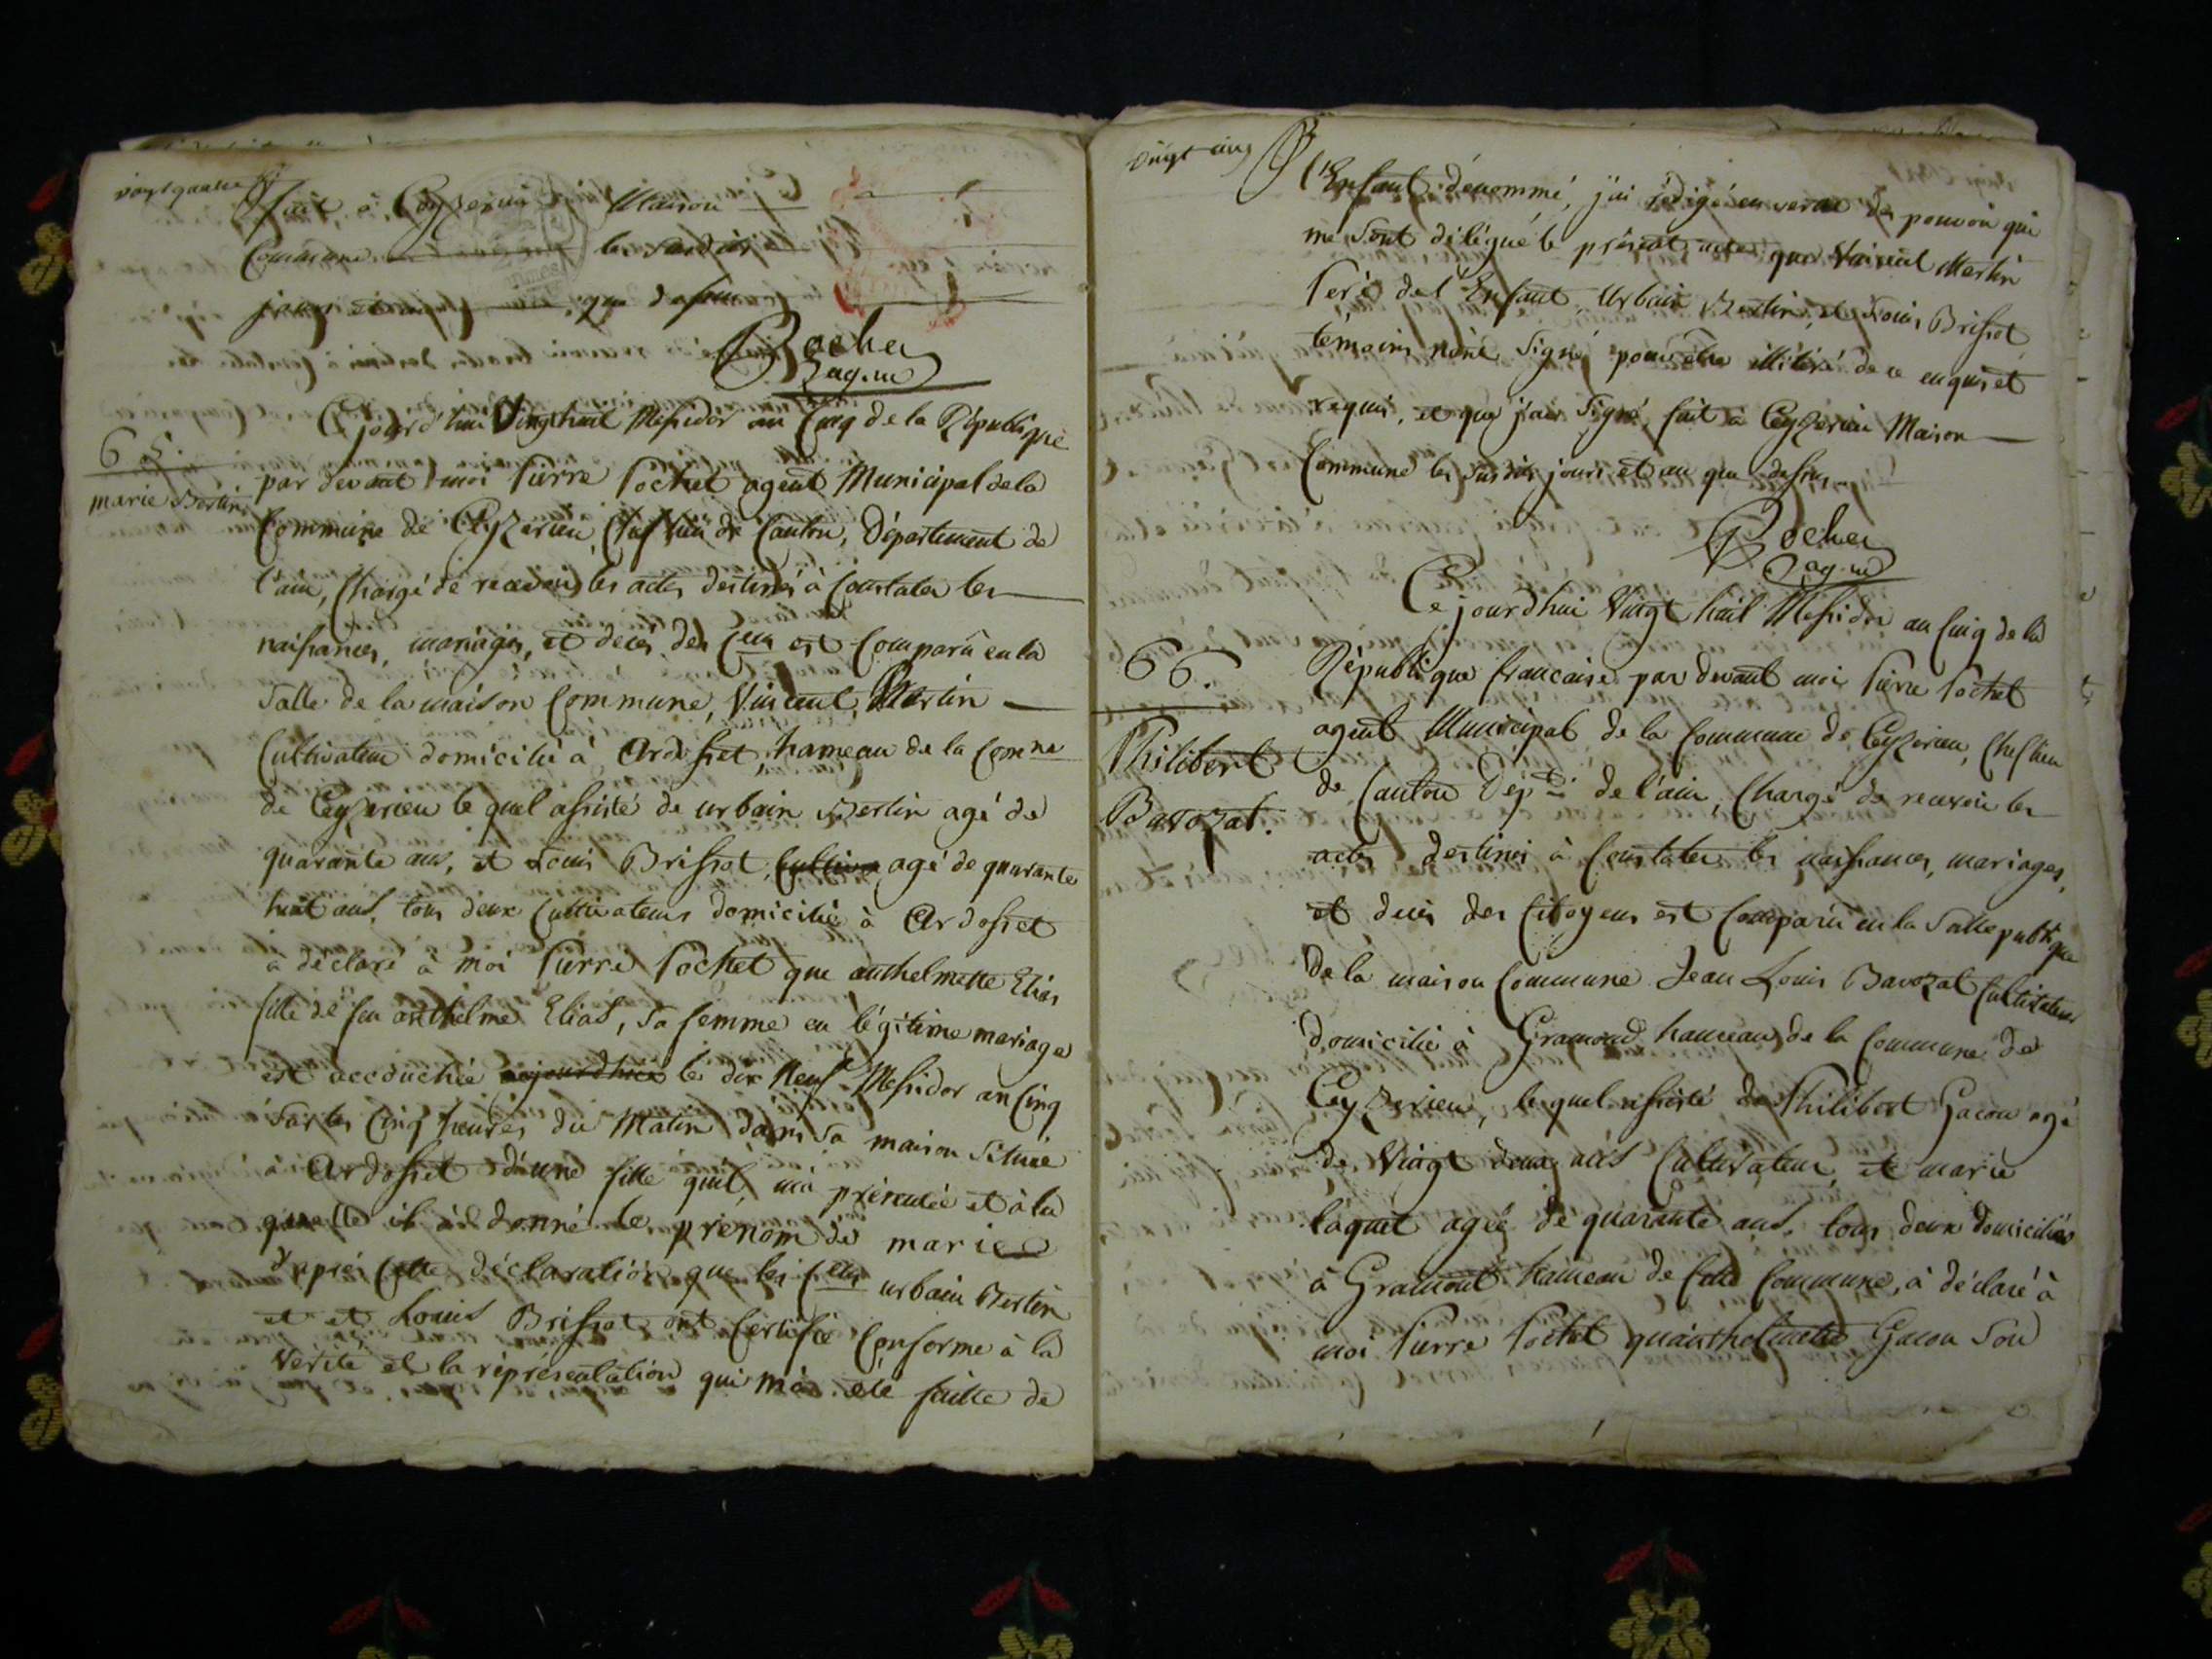 vingt quatre
fait à Ceyzerieu Maison
Commune les susdits
jours et an que dessus
Pochet
ag. m.
65.
marie Bertin
Cejourd'hui Vingthuit Messidor an Cinq de la République
par devant moi Pierre Pochet agent Municipal de la
Commune de Ceyzerieu, Chef lieu de Canton, Département de
l'ain, Chargé de recevoir les actes destinés à Constater les
naissances, mariages, et décès des Cens est Comparû en la
Salle de la maison Commune, Vincent Mertin
Cultivateur domicilié à Ardosset, hameau de la Comne
de Ceyzerieu le quel assisté de urbain Bertin agé de
quarante ans, et Louis Brissot, Cultiva agé de quarante
huit ans, tous deux Cultivateurs domicilié à Ardosset
à déclaré à moi Pierre Pochet que anthelmette Elias
fille de feu anthelme Elias, sa femme en légitime mariage
est accouchée aujourdhui le dix Neuf Messidor an Cinq
sur les Cinq heures du Matin dans sa maison Située
à Ardosset d'une fille qu'il m'a présentée et à la
quelle il à donné le prénom de marie
d'après Cette déclaration que les Cens urbain Bertin
et et Louis Brissot ont Certifié Conforme à la
Vérité et la réprésentation qui m'a été faitte de
vingt cinq
l'Enfant dénommé, j'ai rédigé en vertu des pouvoir qui
me Sont délégué le présent acte que Vincent Mertin
Père de l'Enfant, Urbain Bertin, et Louis Brissot
témoins n'ont Signé pour être illitéré de ce enquis et
requis, et que j'ai Signé, fait à Ceyzerieu Maison
Commune les susdits jours et an que dessus
Pochet
ag. m.
66.
Philibert
Bavozat.
Ce jourdhui Vingt huit Messidor an Cinq de la
République francaise par devant moi Pierre Pochet
agent Municipal de la Commune de Ceyzerieu, Cheflieu
de Canton Dépt de l'ain, Chargé de recevoir les
actes destinés à Constater les naissances, mariages,
et décès des Citoyens est Comparû en la Salle publique
de la maison Commune Jean Louis Bavozat Cultivateur
domicilié à Gramond hameau de la Commune de
Ceyzerieu, lequel assisté de Philibert Gacon agé
de Vingt deux ans Cultivateur, et marie
laquet agée de quarante ans, tous deux domiciliés
à Gramont hameau de Cette Commune, à déclaré à
moi Pierre Pochet qu'anthelmette Gacon Son